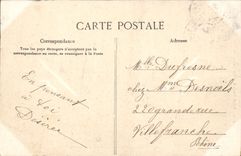 CARTE POSTALE
Correspondance
Tous les pays étrangers n'acceptent pas la
correspondance au recto, se renseigner à la Poste
Adresse
En pensant
à toi
Désirée
Mlle Dufresne
chez Mme Desnoëls
220 grande rue
Villefranche
Rhône